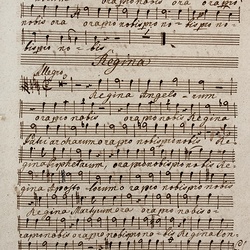 ora pro nobis ora ora pro
nobis ora ora pro nobis pro no=
bis pro no = bis
Regina
Allegro
Regina Angelo = rum
ora pro nobis ora pro nobis Regina
Patriarcharum ora pro nobis pro nobis Re=
gina Prophetarum, ora pro nobis pro nobis Re=
gina Aposto = lorum o ora pro nobis pro nobis
Regina Martyrum ora pro nobis o=
ra pro nobis ora pro nobis pro no = bis Regina Con=